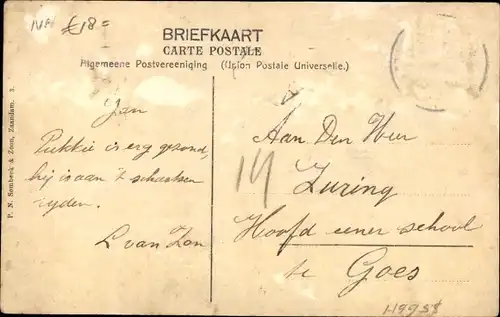 NH £18=
BRIEFKAART
CARTE POSTALE
Algemeene Postvereeniging (Union Postale Universelle.)
P. N. Sombeek & Zoon, Zaandam. 3.
Jan
Pukkie is erg gezond,
hij is aan 't schaatsen
ryden.
L van Zon
Aan Den Heer
Zuring
Hoofd eener school
te Goes
H9958